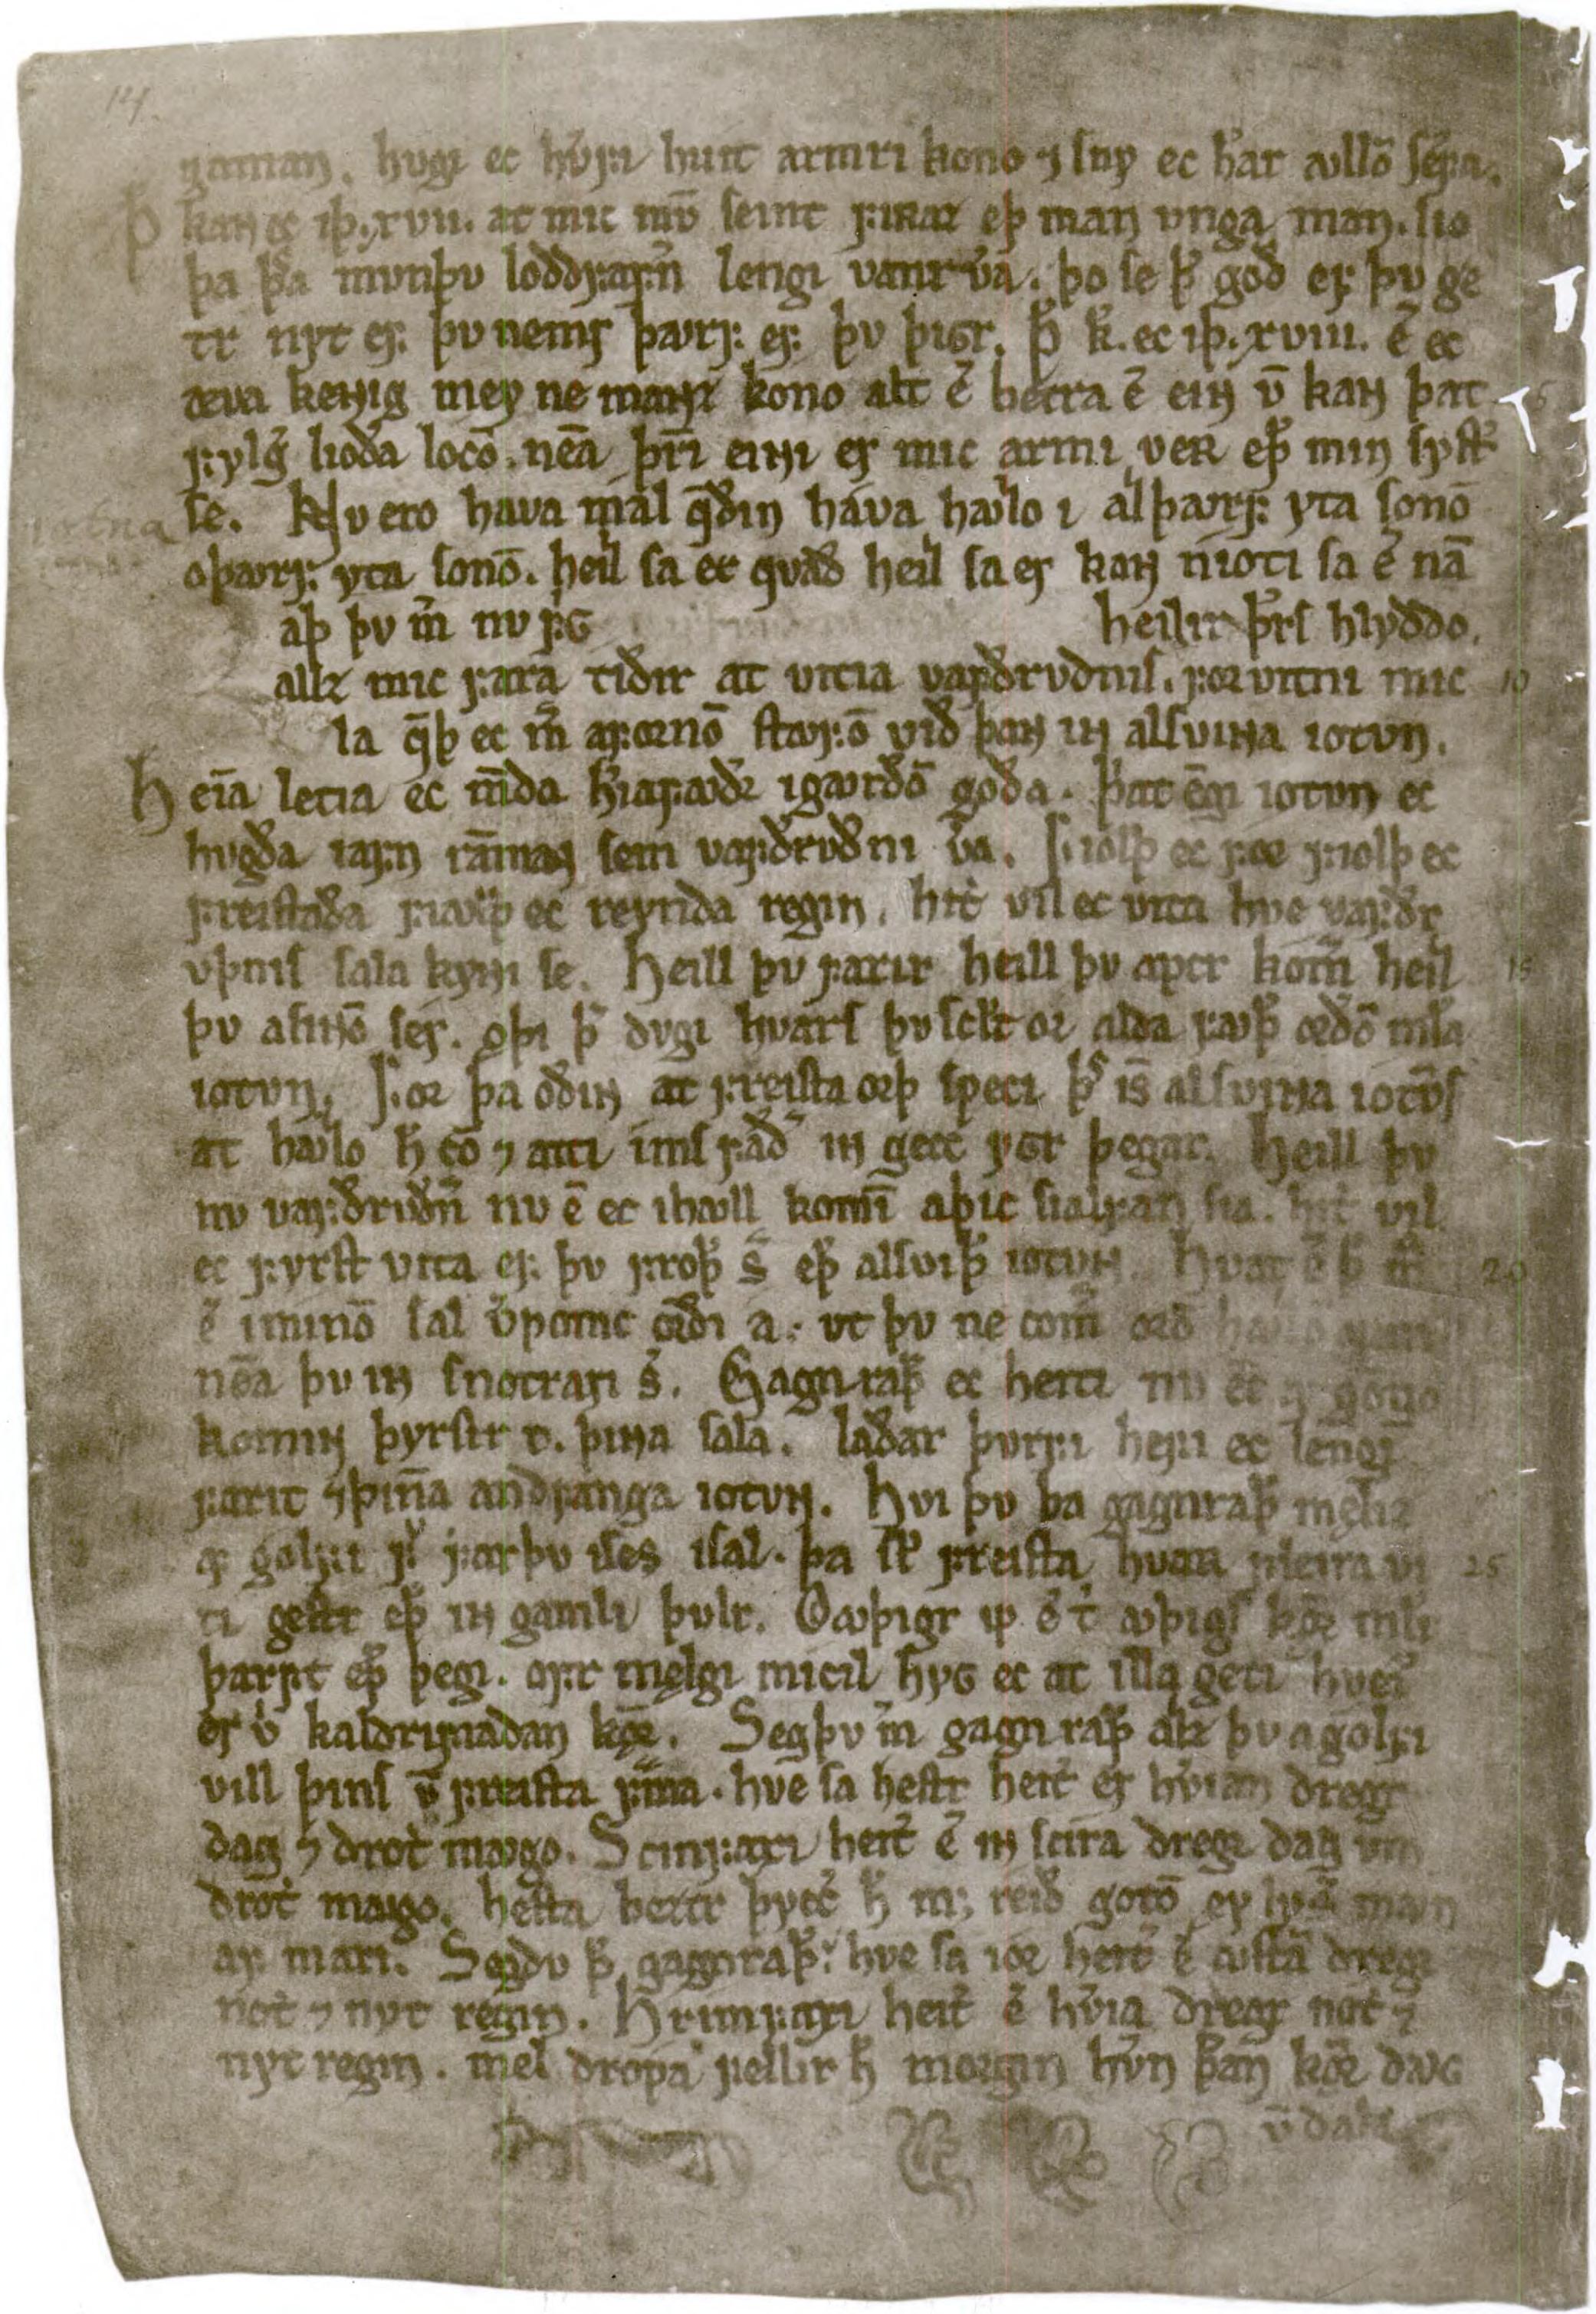 14
gaman. hugi ec hv̓fi huit armri kono ⁊ sný ec h̓ar ꜹllō sęfa.
Þ kaɴ ec iþ. xvii. at mic mv̄ seint fiʀaz eþ man unga man. lio
þa þ̓a munþu loddfafn̓ lengi vanr v̓a. þo se þ̓ god ef þv ge
tr nýt ef þv nemr þꜹrf ef þv þigr. Þ̓ k. ec iþ. xviii. ē ec
æva keɴig mey ne maɴz kono alt ē betra ē eiɴ v̄ kaɴ þat
fylg̓ lioða locō. nēa þr̄i eiɴi er mic armi veʀ eþ̓ min syst̓
se. Nv ero háva mál q̄ðin háva hꜹlo i al þꜹrf yta sonō
oþꜹrf yta sonō. heil sa er qvað heil sa er kaɴ nioti sa ē nā
aþ þv m̄ nv frig heilir þ̓rs hlyddo.
allz mic fara tiðir at vitia vafðrvdnis. forvitni mic
la q̄þ ec m̄ afornō stꜹfō við þaɴ iɴ alsviɴa iotvn.
Heīa letia ec m̄da h̓iafꜹðr igꜹrðō goða. þ̓at ēgi iotvn ec
hugða iafn rāman sem vafðrvðni v̓a. Fiolþ ec for fiolþ ec
freistaða fiolþ ec reynda regin. hit̓ vil ec vita hve vafðr
vþnis sala kyɴi se. Heill þv farir heill þv aptr kom̓ heil
þv asiɴō sér. ǫþi þ̓ dvgi hvars þv sc̓lt or alda fꜹþ̓ orðō mla
iotvn. For þa oðiɴ at freista orþ speci þ̓s iɴs alsviɴa iotv̄s
at hꜹlo h̄ cō ⁊ atti ims fað̓ iɴ gecc ygr þegar. Heill þv
nv vafðrvðn̓ nv ē ec i hꜹll komī aþic sialfan sia. hit̓ vil
ec fyrst vita ef þv froþ̓ s̓ eþ̓ alsviþ̓ iotvɴ. Hvat ē þ̓ m̄
ē iminō sal v̓pomc orði a. ut þv ne com̓ orō hꜹllō
nēa þv iɴ snotrari s̓. Gagnraþ̓ ec heiti nv ec af gongo
komiɴ þyrstr t. þiɴa sala. laðar þurfi hefi ec lengi
farit ⁊ þiɴa andfanga iotvɴ. Hvi þv þa gagnraþ̓ męliz
af golfi f̓ farþv i ses i sal. þa sc̓ freista hvaʀ fleira vi
ti gestr eþ̓ iɴ gamli þulr. Oꜹþigr ꝩ ē t̓ ꜹþigs kǫ̓r mli
þarft eþ̓ þegi. ofr męlgi micil hyg ec at illa geti hveī
er v̓ kaldrifiadan kǫ̓r. Seg þv m̄ gagnraþ̓ allz þv a golfi
vill þins v̄ freista frama. hve sa hestr heit̓ er hv̓ian dregr
dag ⁊ drot̓ mꜹgo. Scinfaxi heit̓ ē iɴ scira dregr dag um
drót̓ mꜹgo. hesta beztr þycc̓ h̄ m; reið gotō ey lys̓ mꜹn
af mari. Segdv þ̓ gagnraþ̓ hve sa ior heit̓ ē ꜹstā dregr
nót ⁊ nyt regin. Hrimfaxi heit̓ ē hv̓ia dregr nót ⁊
nyt regin. mél dropa fellir h̄ morgin hv̓n þ̓aɴ kǫ̓r dꜹg
v̄ dala
5
10
15
20
25